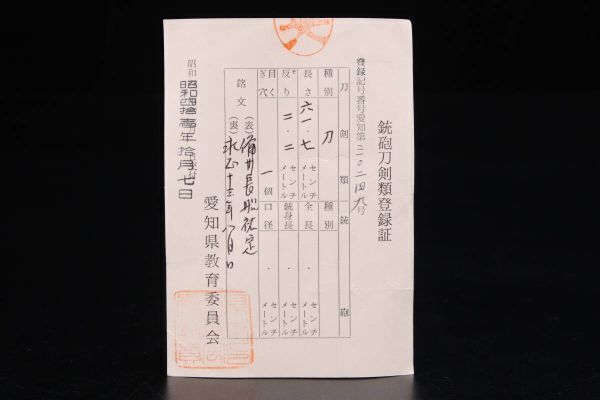 銃砲刀剣類登録証
登録記号番号愛知第三〇二四九号
刀剣類 銃砲
種別 刀 種別
長さ 六一・七 センチメートル 全長 ・ センチメートル
反り 二・二 センチメートル 銃身長 ・ センチメートル
目くぎ穴 一個 口径 ・ センチメートル
銘文 (表) 備州長船祐定
(裏) 永正十三年八月日
昭和
昭和四拾壱年拾月七日
愛知県教育委員会